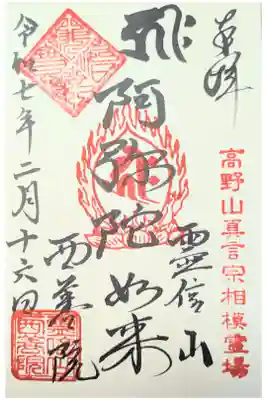 奉拝
高野山真言宗相模霊場
飛阿弥陀如来
霊信山
西善院
令和七年二月十六日